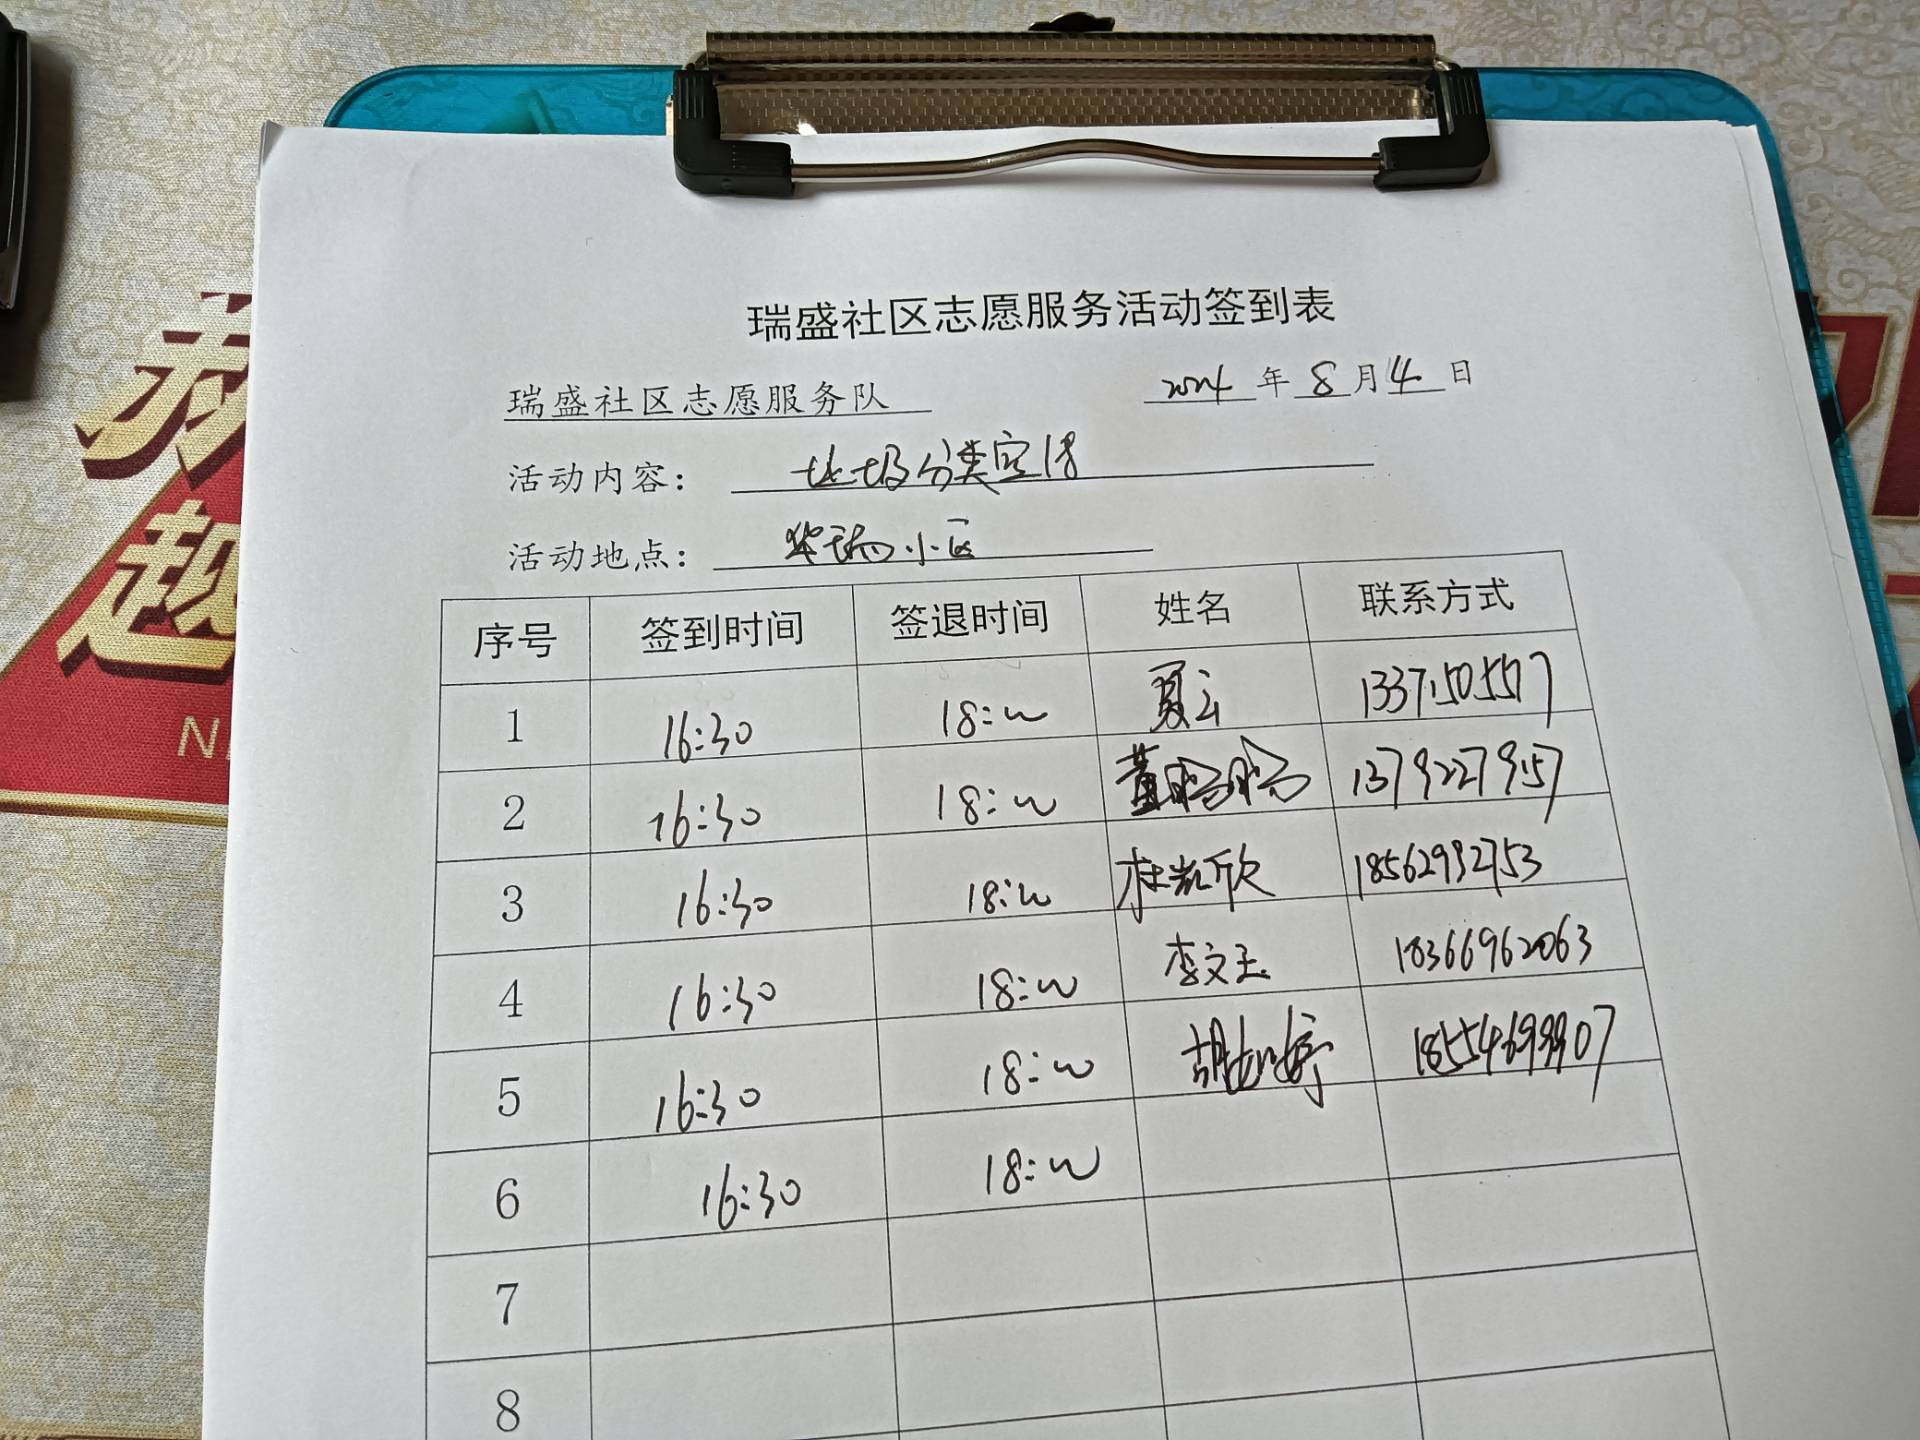 瑞盛社区志愿服务活动签到表
瑞盛社区志愿服务队 2024年8月4日
活动内容： 垃圾分类宣传
活动地点： 华瑞小区
序号 签到时间 签退时间 姓名 联系方式
1 16:30 18:00 夏云
2 16:30 18:00 董
3 16:30 18:00 杜凯欣 18562992753
4 16:30 18:00 李文玉 18366962063
5 16:30 18:00 胡如婷
6 16:30 18:00
7
8
越
N